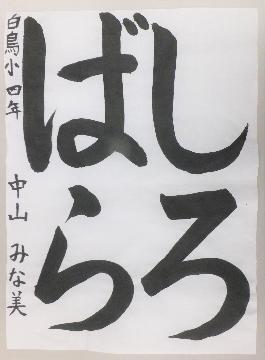 しろ
ばら
白鳥小四年 中山みな美